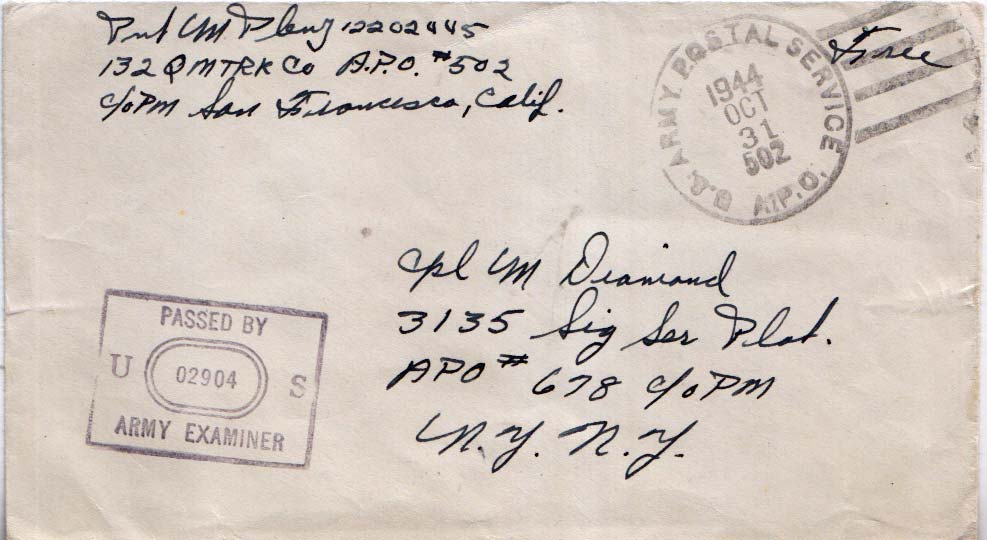 Pvt M Pleny 12202445
132 QMTRK Co A.P.O. #502
c/o PM San Francisco, Calif.
Free
U.S. ARMY POSTAL SERVICE
A.P.O.
1944
OCT
31
502
Cpl M Diamond
3135 Sig Ser Plat.
APO # 678 c/o PM
N.Y. N.Y.
PASSED BY
U 02904 S
ARMY EXAMINER